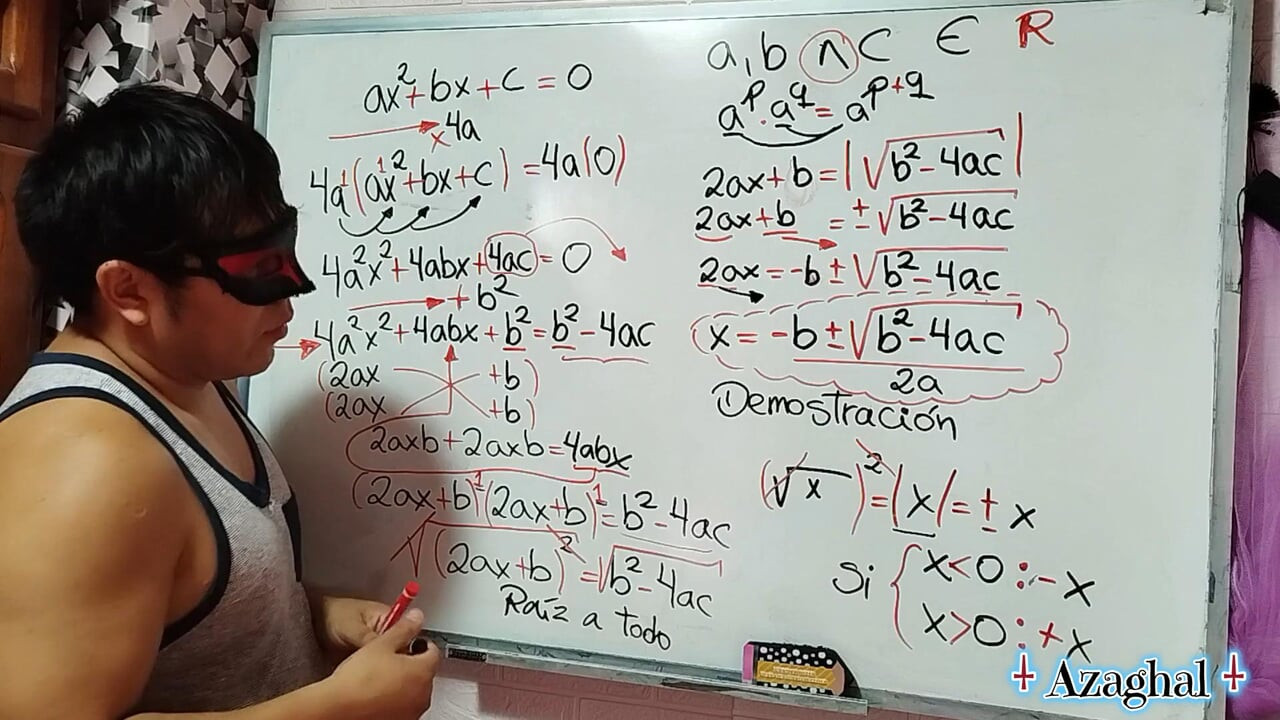 ax²+bx+c=0
x4a
4a¹(a¹x²+bx+c)=4a(0)
4a²x²+4abx+4ac=0
+b²
4a²x²+4abx+b²=b²-4ac
(2ax +b)
(2ax +b)
2axb+2axb=4abx
(2ax+b)¹(2ax+b)¹=b²-4ac
√(2ax+b)²=√b²-4ac
Raíz a todo
a,b ∧ C ∈ R
a^p.a^q=a^p+q
2ax+b=|√b²-4ac|
2ax+b=±√b²-4ac
2ax=-b±√b²-4ac
x=-b±√b²-4ac
2a
Demostración
(√x)²=|x|=±x
Si { x<0:-x
x>0:+x
Azaghal